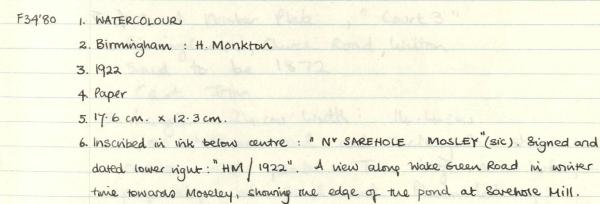 F34'80 1. WATERCOLOUR
2. Birmingham : H. Monkton
3. 1922
4. Paper
5. 17.6 cm. x 12.3 cm.
6. Inscribed in ink below centre : "Nr SAREHOLE MOSLEY" (sic). Signed and
dated lower right: "HM/1922". A view along Wake Green Road in winter
time towards Moseley, showing the edge of the pond at Sarehole Mill.